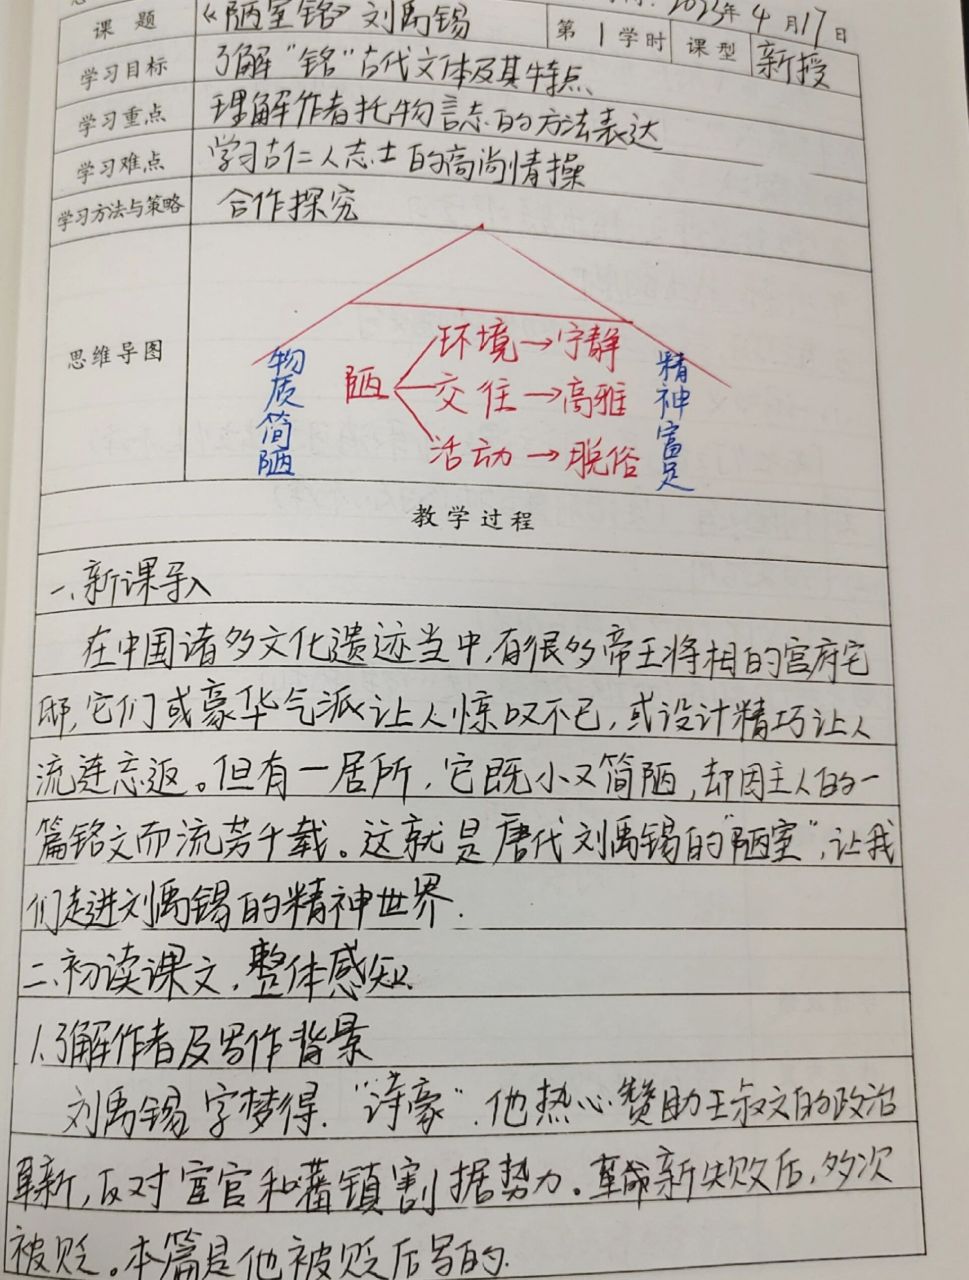 2023年4月17日
课题 《陋室铭》刘禹锡 第1学时 课型 新授
学习目标 了解“铭”古代文体及其特点
学习重点 理解作者托物言志的方法表达
学习难点 学习古仁人志士的高尚情操
学习方法与策略 合作探究
思维导图
物质简陋
陋
环境→宁静
交往→高雅
活动→脱俗
精神富足
教学过程
一、新课导入
在中国诸多文化遗迹当中,有很多帝王将相的宫府宅
邸,它们或豪华气派让人惊叹不已,或设计精巧让人
流连忘返。但有一居所,它既小又简陋,却因主人的一
篇铭文而流芳千载。这就是唐代刘禹锡的“陋室”,让我
们走进刘禹锡的精神世界.
二、初读课文,整体感知.
1.了解作者及写作背景
刘禹锡,字梦得.“诗豪”.他热心赞助王叔文的政治
革新,反对宦官和藩镇割据势力。革命新失败后,多次
被贬。本篇是他被贬后写的.